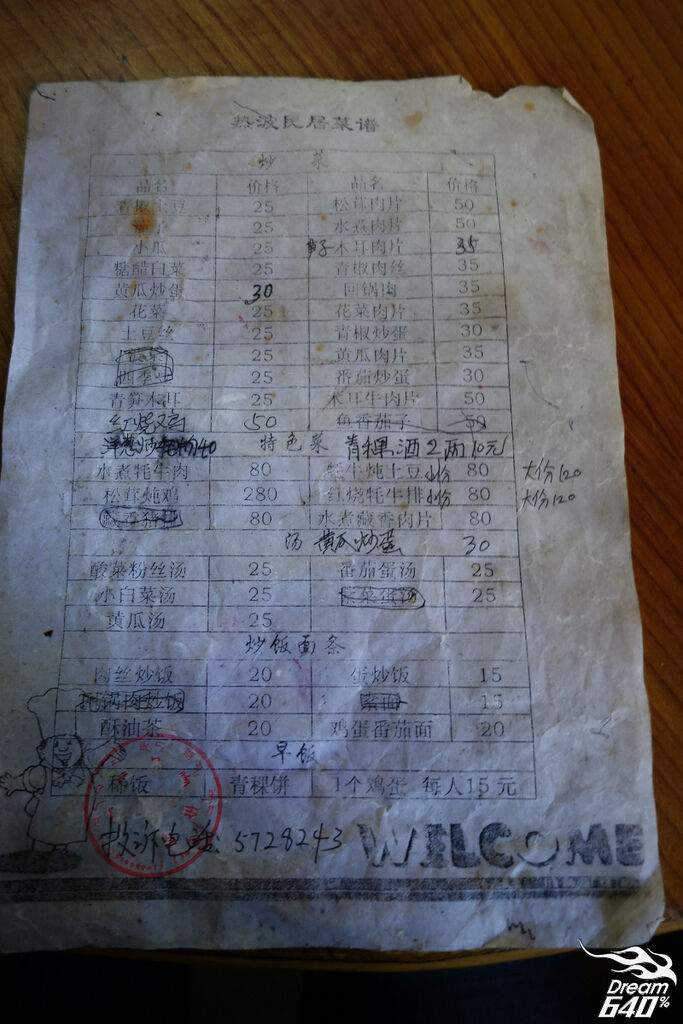 热波民居菜谱
炒 菜
品名 价格 品名 价格
青椒土豆 25 松茸肉片 50
茄子 25 水煮肉片 50
小瓜 25 木耳肉片 35
糖醋白菜 25 青椒肉丝 35
黄瓜炒蛋 30 回锅肉 35
花菜 25 花菜肉片 35
土豆丝 25 青椒炒蛋 30
25 黄瓜肉片 35
四季豆 25 番茄炒蛋 30
青笋木耳 25 木耳牛肉片 50
红烧 50 鱼香茄子 50
洋葱炒 140 特色菜 青稞酒2两10元
水煮牦牛肉 80 牦牛炖土豆 小份 80 大份120
松茸炖鸡 280 红烧牦牛排 小份 80 大份120
藏香猪 80 水煮藏香肉片 80
汤 黄瓜炒蛋 30
酸菜粉丝汤 25 番茄蛋汤 25
小白菜汤 25 紫菜蛋汤 25
黄瓜汤 25
炒饭面条
肉丝炒饭 20 蛋炒饭 15
回锅肉炒饭 20 15
酥油茶 20 鸡蛋番茄面 20
早饭
稀饭 青稞饼 1个鸡蛋 每人15元
投诉电话: 5728243 WELCOME
Dream
640%